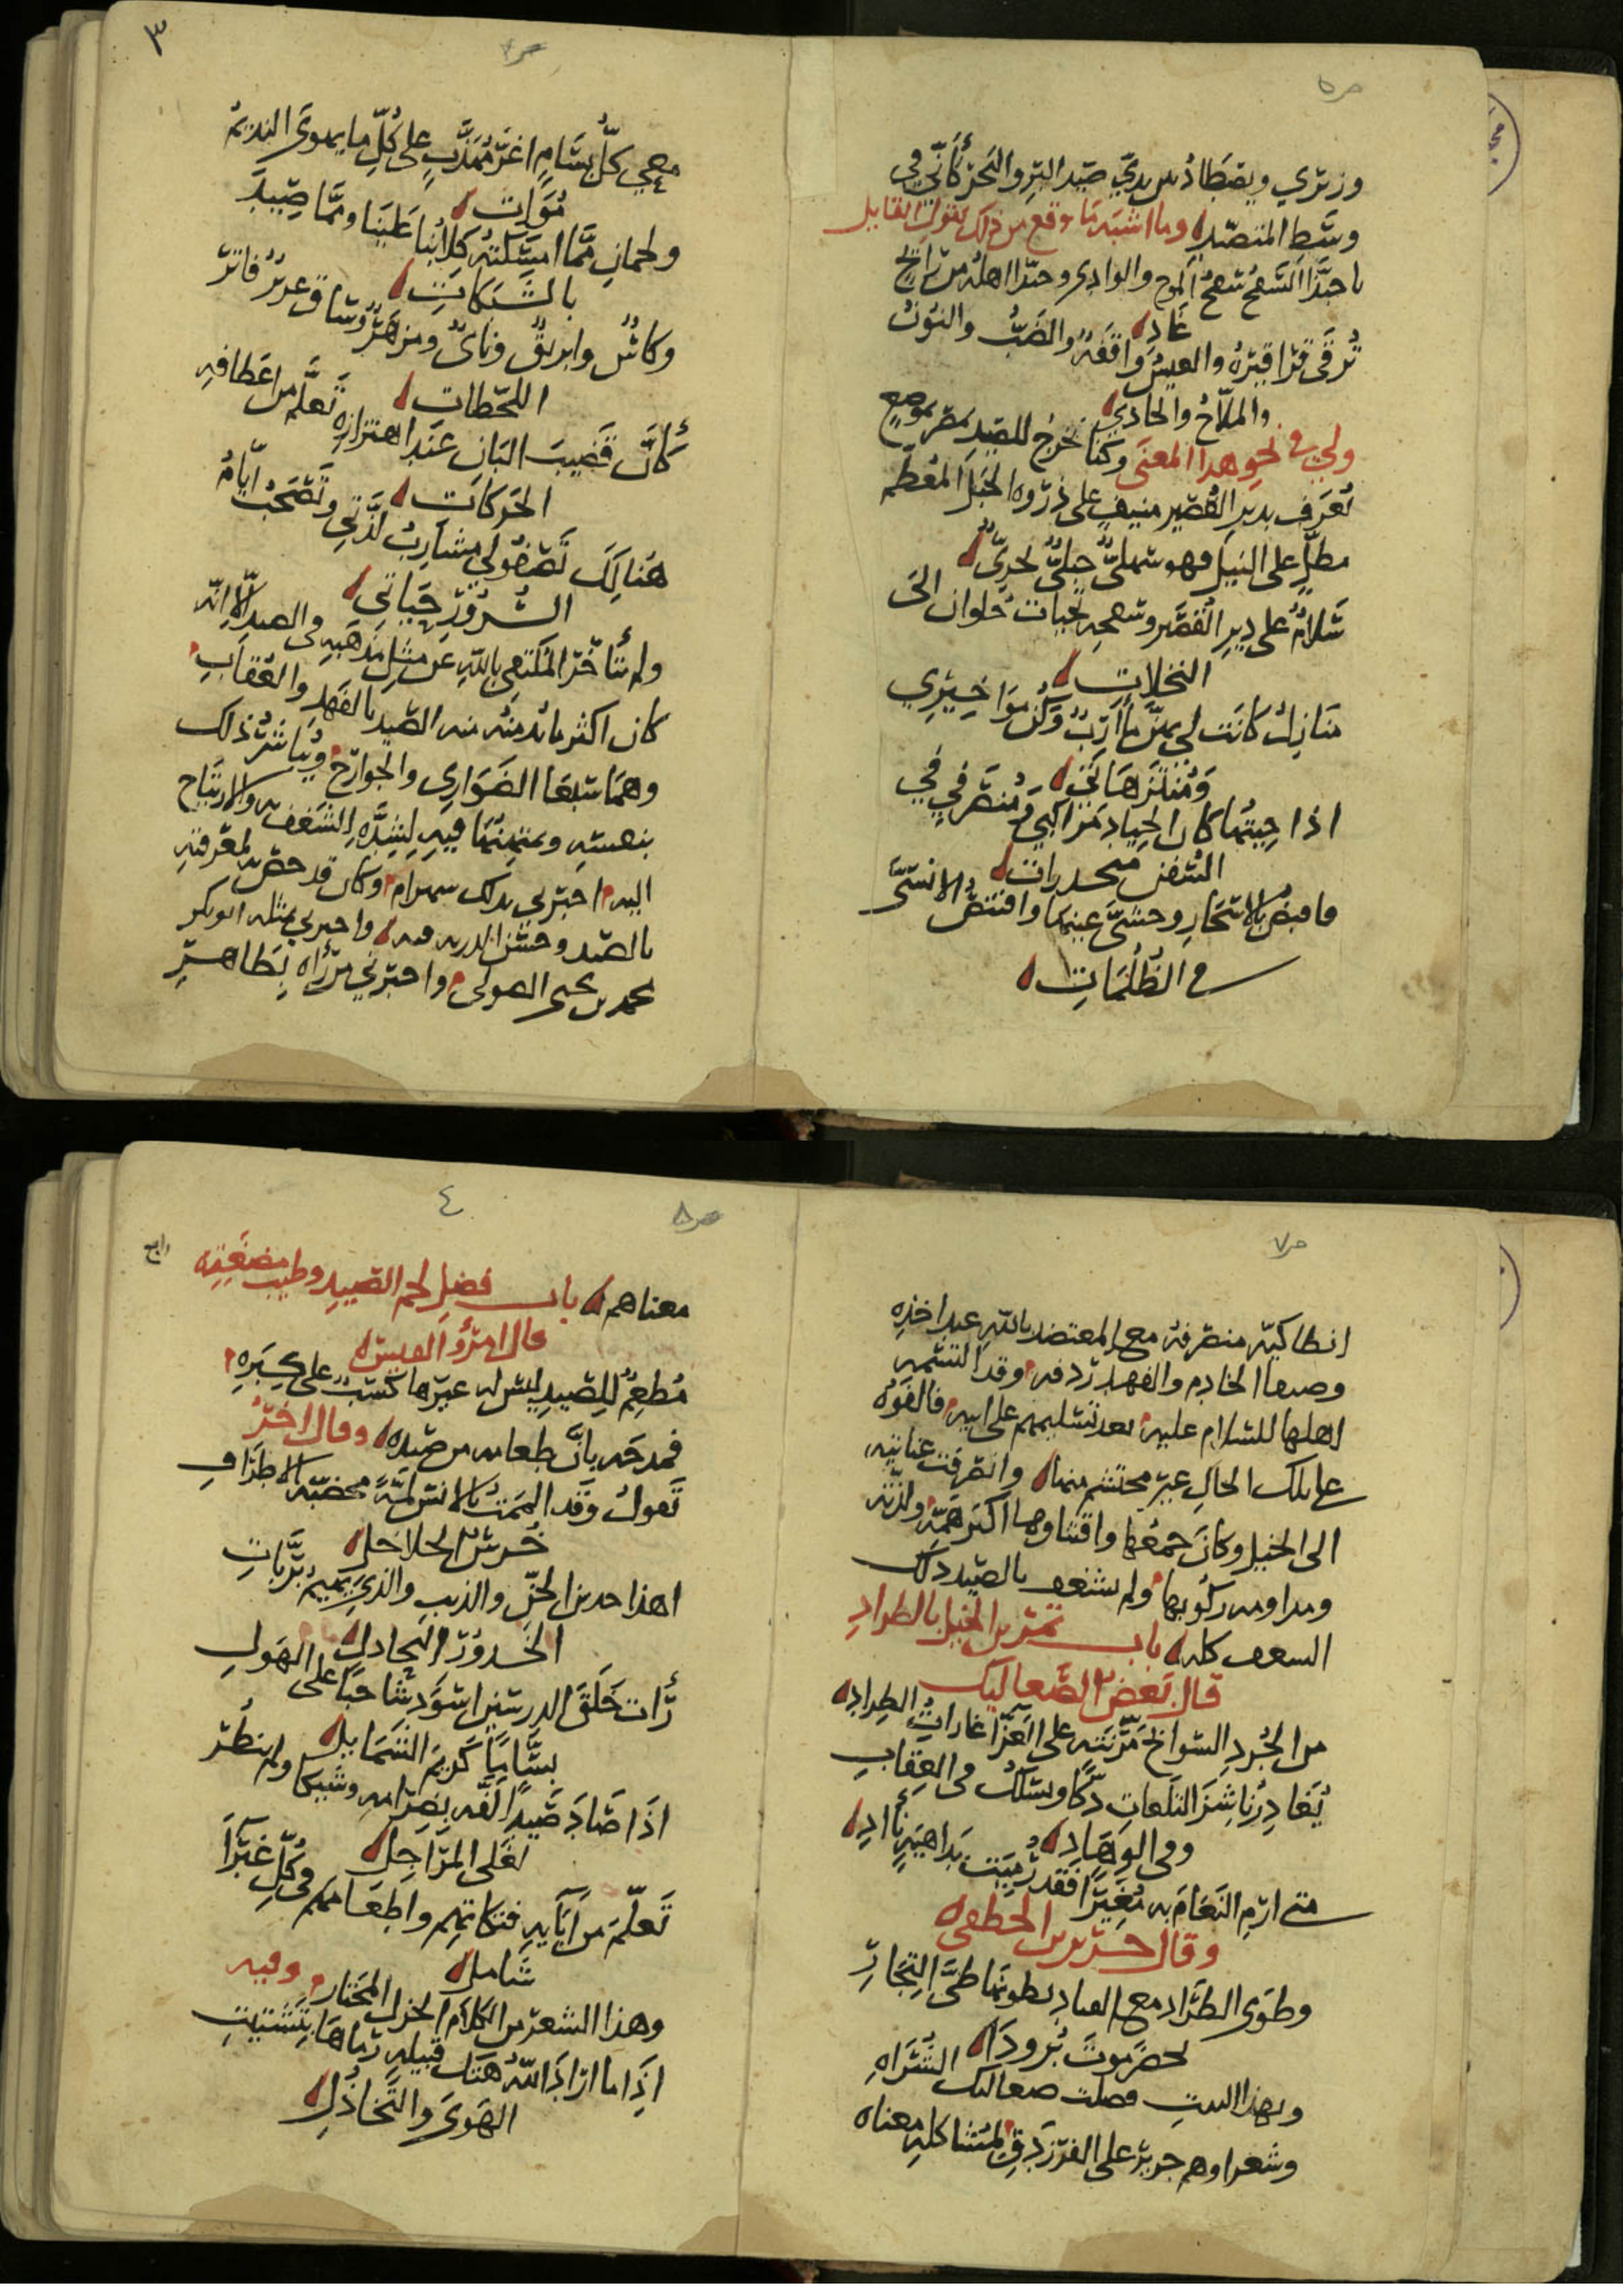 ص٥
وزيري ويصطاد بين يديّ صيد البر والبحر كأنّي في
وسط المتصيد وما اشبه ما وقع من ذلك بقول القايل
يا حبذا السفح سفح المرج والوادي وحبذا اهله من رايح
غاد
ترقى قراقيره والعيس واقفة والضب والنون
والملاح والحادي
ولي في نحو هذا المعنى وكنا نخرج للصيد بمصر بموضع
تعرف بدير القصير منيف على ذروه الجبل المقطم
مطلّ على النيل فهو سهليّ جبليّ بحريّ
سلام على دير القصير وسفحه بجنات حلوان الى
النخلات
منازل كانت لي بهنّ مآرب وكن مواخيري
ومنتزهاتي
اذا جيتها كان الجياد مراكبي ومنصرفي في
السفن منحدرات
فاقبض بالاسحار وحشيّ عينها واقتنص الانسيّ
في الظلمات
ص٦
٣
معي كلّ بسّام اغرّ مهذّب على كلّ ما يهوى النديم
مُوات
ولحمان ممّا امسكته كلابنا علينا وممّا صيد
بالشبكات
وكاس وابريق وناي ومزهر وساق غرير فاتر
اللحظات
كأنّ قضيب البان عند اهتزازه تعلّم من اعطافه
الحركات
هنالك تصفو لي مشارب لذّتي وتصحب ايّام
السرور حياتي
ولم يتأخر المكتفي بالله عن مثل مذهبه في الصيد الّا انّه
كان اكثر ما يدمنه منه الصيد بالفهد والعقاب
وهما سبعا الضواري والجوارح ويباشر ذلك
بنفسه ويمتهنها فيه لشدّه الشغف به والارتياح
اليه اخبرني بذلك بهرام وكان قد خصّ به لمعرفته
بالصيد وحسن الدربه فيه واخبرني بمثله ابو بكر
محمد بن يحيى الصولي واخبرني من رآه بظاهر
ص٧
انطاكيّه منصرفه مع المعتضد بالله عند اخذه
وصيفا الخادم والفهد ردفه وقد استقبله
اهلها للسلام عليه بعد تسليمهم على ابيه فالفوه
على تلك الحال غير محتشم منها وانصرفت عنايته
الى الخيل وكان جمعها واقتناوها اكبر همّه ولذّته
ومداومه ركوبها ولم يشغف بالصيد ذلك
الشغف كله باب تمرين الخيل بالطراد
قال بعض الصعاليك
من الجرد السوابح مرّنته على الغزّا غارات الطراد
يغادر ناشز التلعات دكّا ويسلك في العقاب
وفي الوهاد
متى ارم النعام به مغيرا فقد رميت بداهية ناد
وقال جرير بن الخطفى
وطوى الطراد مع القياد بطونها طيّ التجار
لحضرموت برودا
وبهذا البيت فضلت صعاليك السراه
وشعراوهم جرير على الفرزدق لمشاكله معناه
ص٨
٤
رابع
معناهم باب فضل لحم الصيد وطيب مضغته
قال امرؤ القيس
مُطعِم للصيد ليس له غيرها كسب على كبره
فمدحه بانّ طعامه من صيده وقال اخر
تقول وقد الممت بالانس لمّة مخضّبة الاطراف
خرس الخلاخل
اهذا خدين الجنّ والذيب والذي يهيم بربّات
الخدور البحادل
رات خلق الدرسين اسود شاحبا على الهول
بسّاما كريم الشمايل
اذا صاد صيدا لفّه بضرامه وشيكا ولم ينظر
لغلي المراجل
تعلّم من آبايه فتكاتهم واطعامهم في كلّ غبرآ
شامل
وهذا الشعر من الكلام الجزل المختار وفيه
اذا ما اراد الله هتك قبيله رماها بتشتيت
الهوى والتخاذل